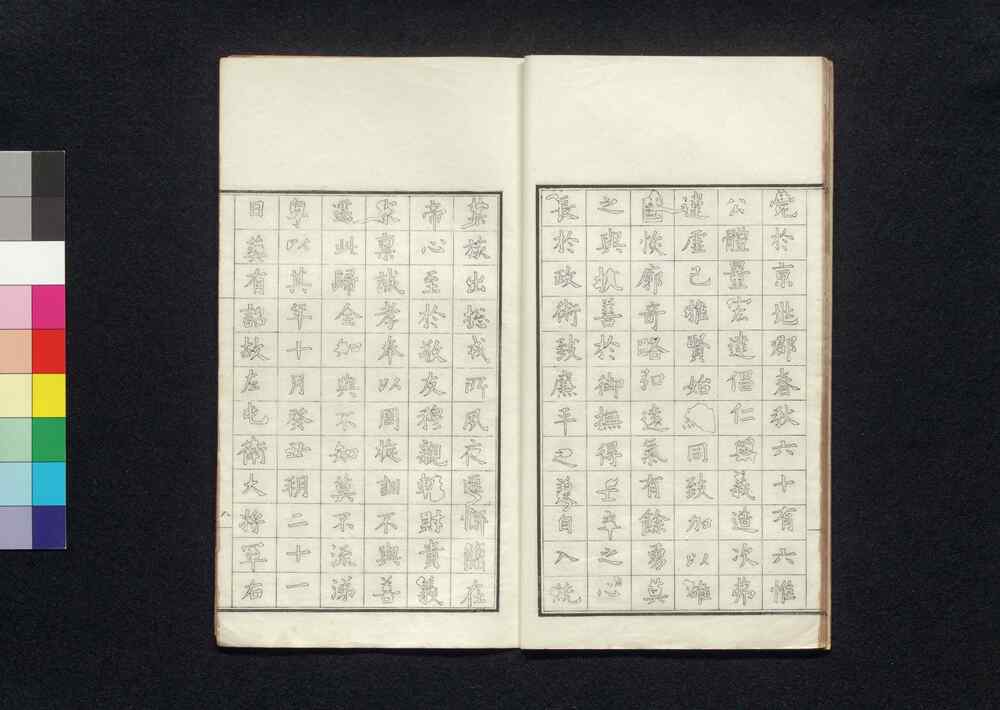 薨於京郡春秋六十有六惟
公體量宏達倡仁爲義造次弗
違虛己推賢始同致加以雄
恢廓奇略扣遠氣有餘勇莫
之與抗善於御撫得士卒之心
長於政術致廉平之譽自入統
禁旅出總戎所夙夜匪懈簡在
帝心至於敬友穆親輕財貴義
稟誠孝奉以周旋訓不與善
遘此歸全知與不知莫不流涕
粵以其年十月癸丑朔二十一
日葬有詔故左屯衛大將軍右